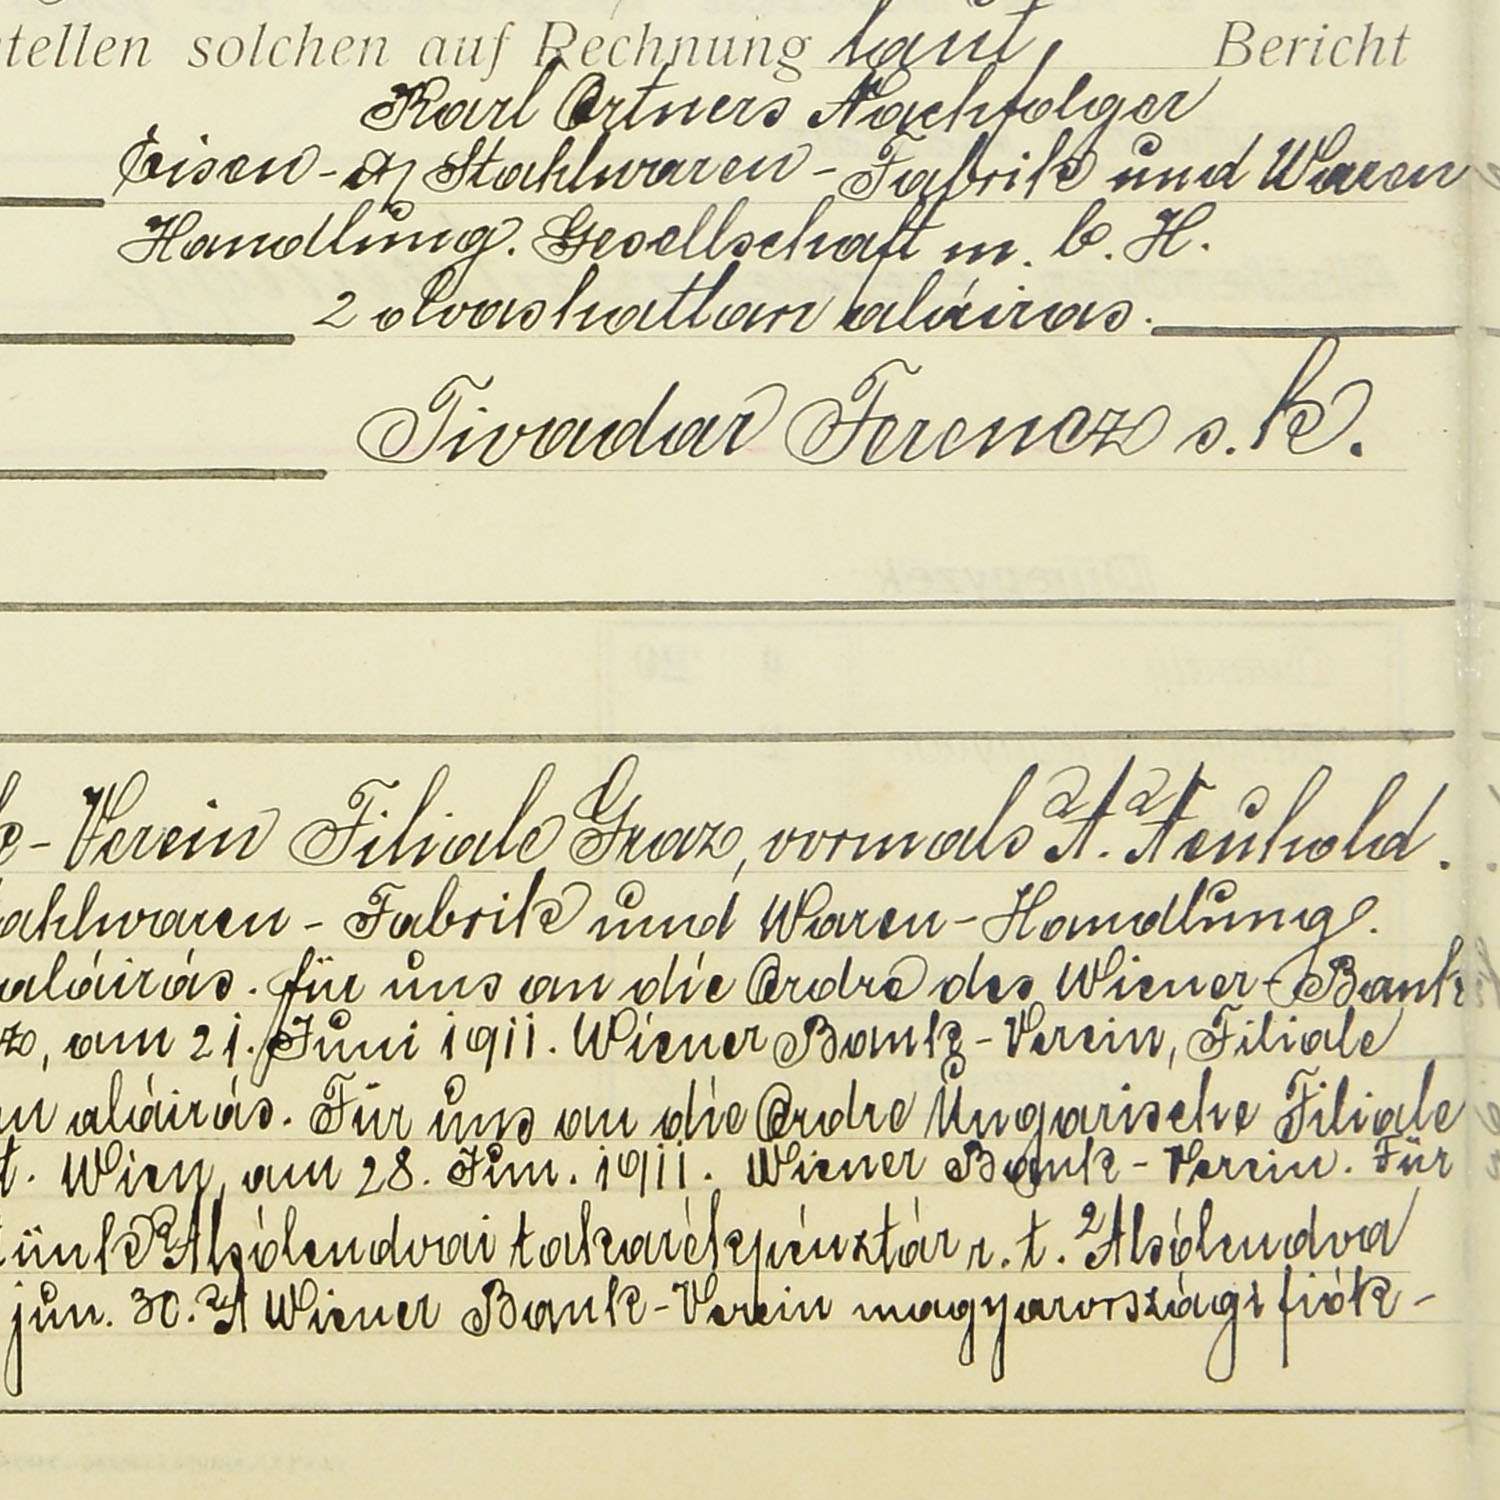 stellen solchen auf Rechnung laut, Bericht
Karl Ortners Nachfolger
Eisen- & Stahlwaren - Fabrik und Waren
Handlung. Gesellschaft m. b. H.
2 olvashatlan aláiras.
Tivadar Ferencz s. k.
- Verein Filiale Graz, vormals A. Neuhold.
ahlwaren - Fabrik und Waren-Handlung.
aláirás. für uns an die Ordre des Wiener-Bank
z, am 21. Juni 1911. Wiener Bank-Verein, Filiale
n aláirás. Für uns an die Ordre Ungarische Filiale
t. Wien, am 28. Jun. 1911. Wiener Bank-Verein. Für
tünk Alsólendvai takarékpénztár r. t. Alsólendva
jún. 30. A Wiener Bank-Verein magyarországi fiók-